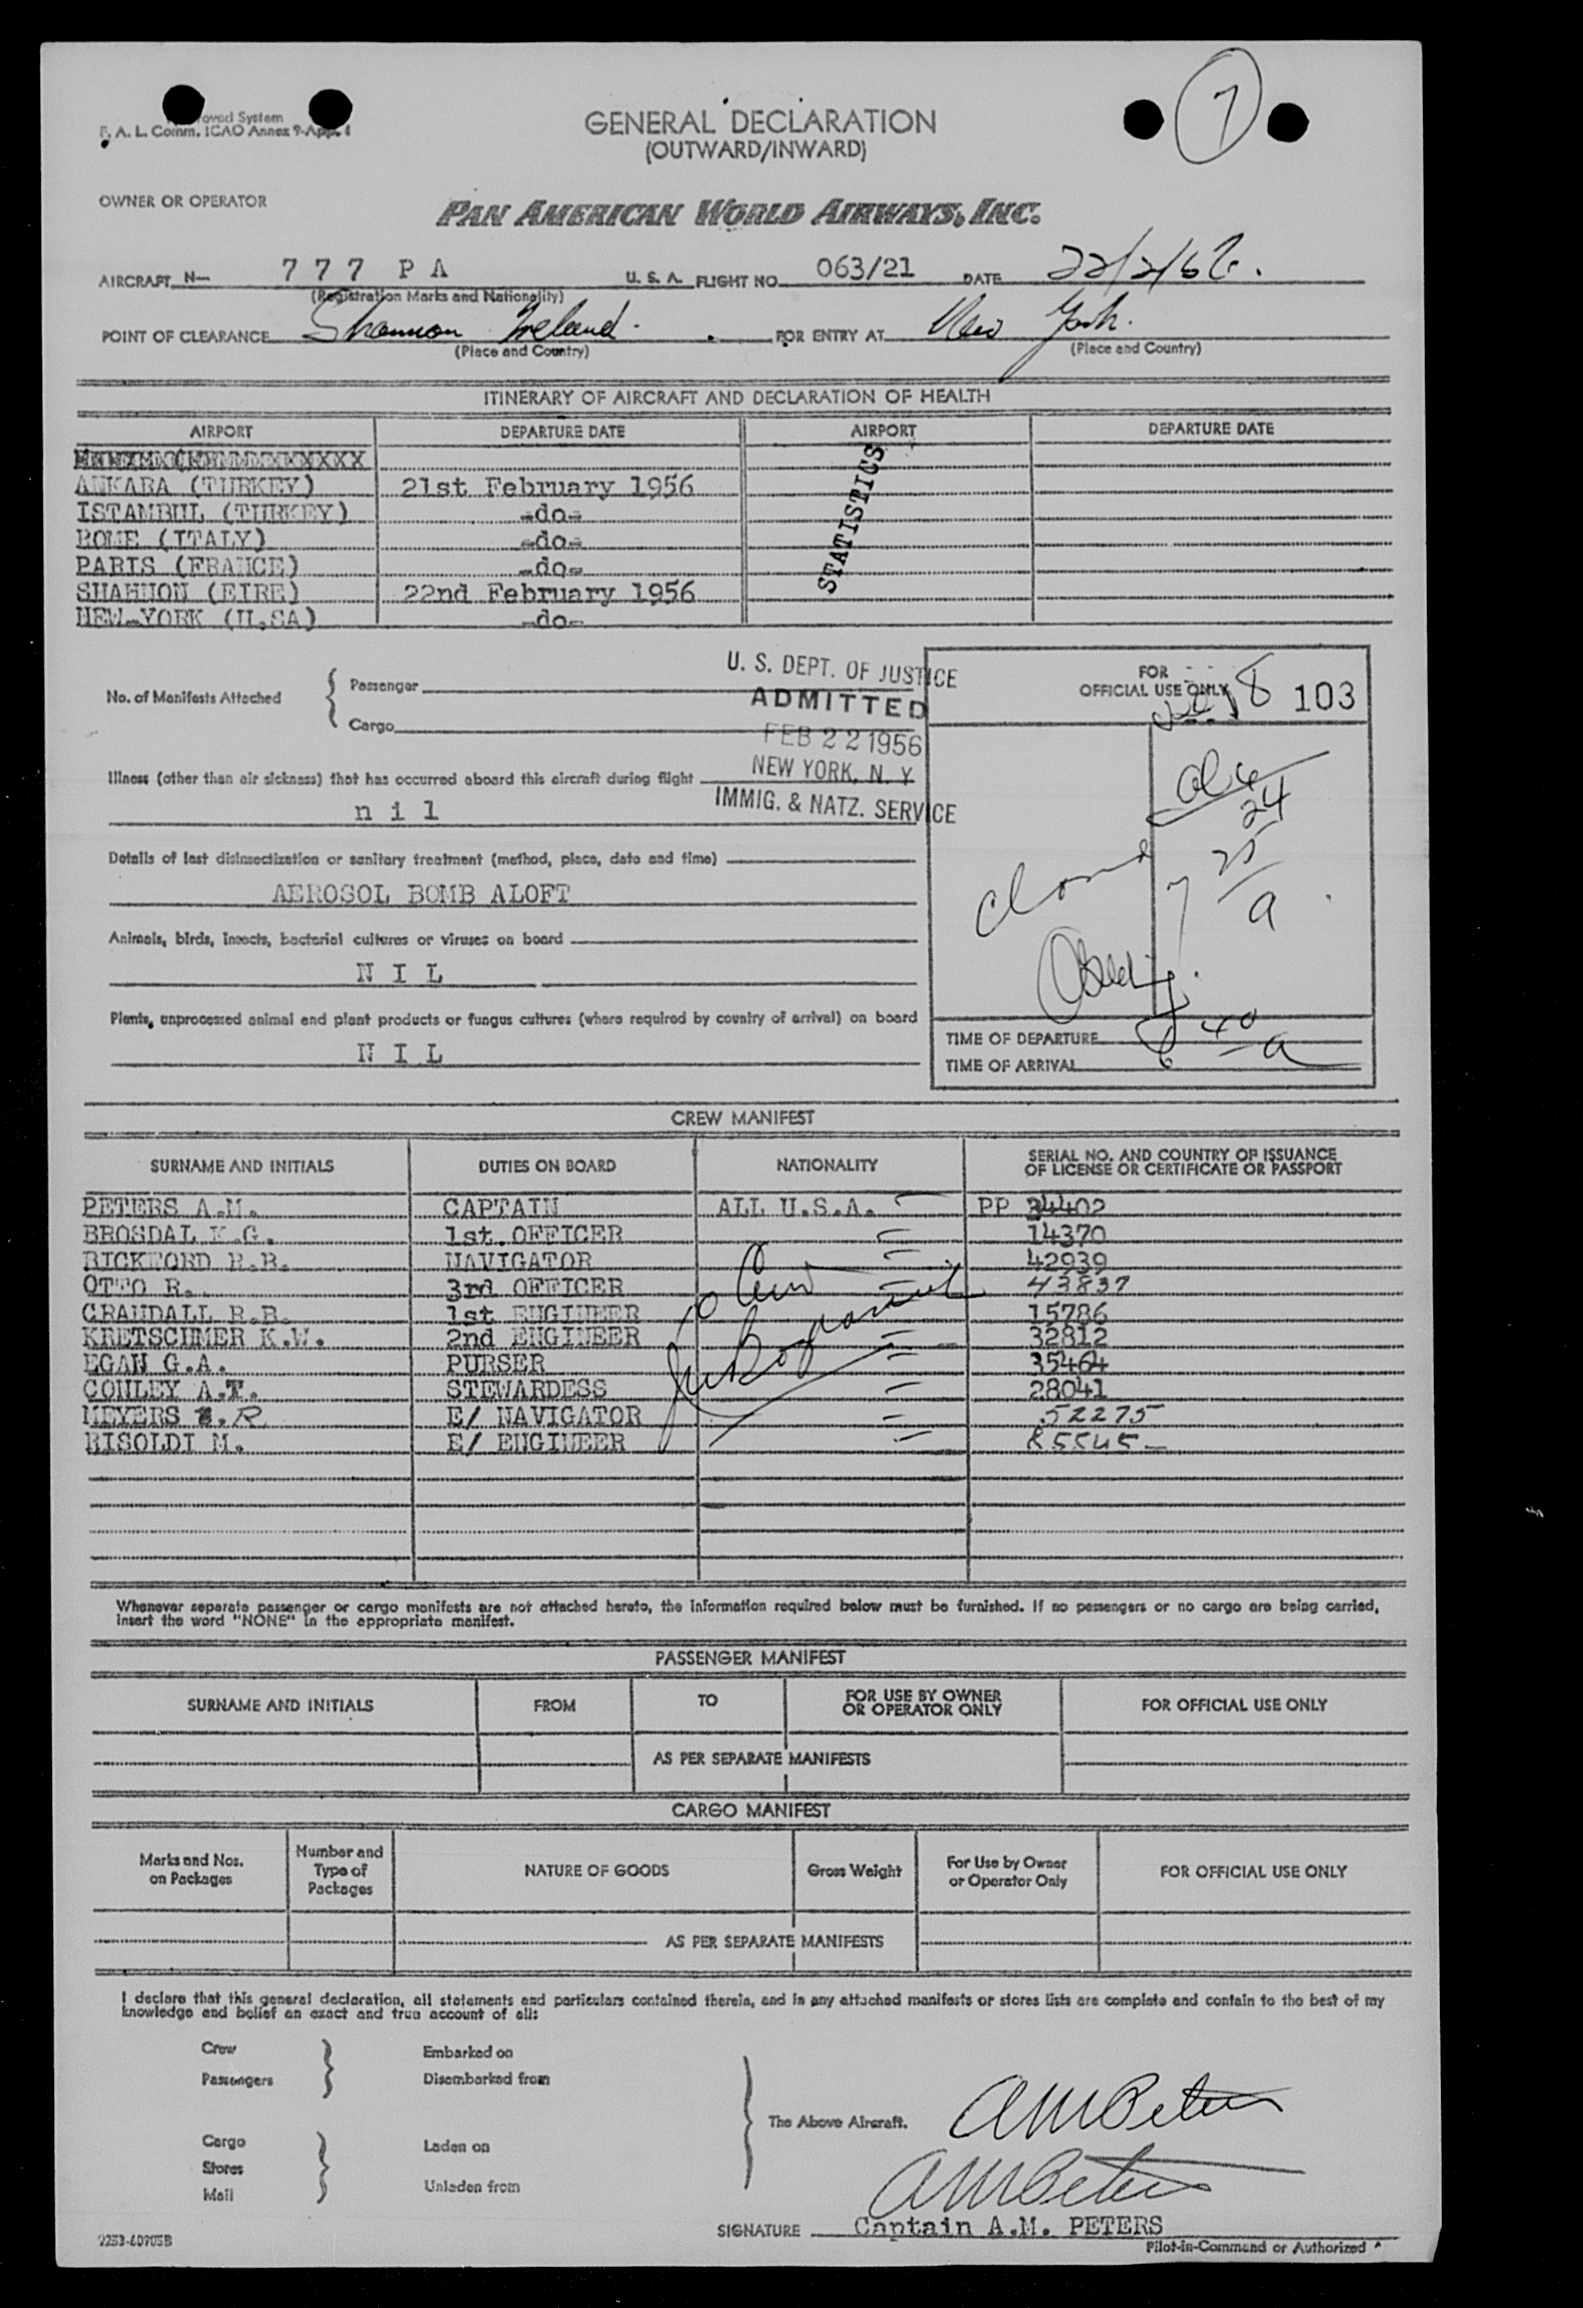 oved System
F. A. L. Comm. ICAO Annex 9-App. 1
GENERAL DECLARATION
(OUTWARD/INWARD)
7
OWNER OR OPERATOR
PAN AMERICAN WORLD AIRWAYS, INC.
AIRCRAFT N— 777 PA U. S. A. FLIGHT NO. 063/21 DATE
(Registration Marks and Nationality)
POINT OF CLEARANCE Shannon Ireland. FOR ENTRY AT New York.
(Place and Country) (Place and Country)
ITINERARY OF AIRCRAFT AND DECLARATION OF HEALTH
AIRPORT DEPARTURE DATE AIRPORT DEPARTURE DATE
ANKARA (TURKEY) 21st February 1956
ISTAMBUL (TURKEY) -do-
ROME (ITALY) -do-
PARIS (FRANCE) -do-
SHANNON (EIRE) 22nd February 1956
NEW-YORK (U.SA) -do-
STATISTICS
No. of Manifests Attached { Passenger
Cargo
U. S. DEPT. OF JUSTICE
ADMITTED
FEB 22 1956
NEW YORK, N. Y
IMMIG. & NATZ. SERVICE
FOR
OFFICIAL USE ONLY
8 103
Illness (other than air sickness) that has occurred aboard this aircraft during flight
nil
Details of last disinsectization or sanitary treatment (method, place, date and time)
AEROSOL BOMB ALOFT
Animals, birds, insects, bacterial cultures or viruses on board
NIL
Plants, unprocessed animal and plant products or fungus cultures (where required by country of arrival) on board
NIL
24
TIME OF DEPARTURE
TIME OF ARRIVAL
CREW MANIFEST
SURNAME AND INITIALS DUTIES ON BOARD NATIONALITY SERIAL NO. AND COUNTRY OF ISSUANCE
OF LICENSE OR CERTIFICATE OR PASSPORT
PETERS A.M. CAPTAIN ALL U.S.A. PP 34402
BROSDAL K.G. 1st.OFFICER 14370
BICKFORD R.B. NAVIGATOR 42939
OTTO R. 3rd OFFICER 43837
CRANDALL R.B. 1st ENGINEER 15786
KRETSCHMER K.W. 2nd ENGINEER 32812
EGAN G.A. PURSER 35464
CONLEY A.T. STEWARDESS 28041
MEYERS R E/ NAVIGATOR 52275
RISOLDI M. E/ ENGINEER 85545
Whenever separate passenger or cargo manifests are not attached hereto, the information required below must be furnished. If no passengers or no cargo are being carried,
insert the word "NONE" in the appropriate manifest.
PASSENGER MANIFEST
SURNAME AND INITIALS FROM TO FOR USE BY OWNER
OR OPERATOR ONLY FOR OFFICIAL USE ONLY
AS PER SEPARATE MANIFESTS
CARGO MANIFEST
Marks and Nos.
on Packages Number and
Type of
Packages NATURE OF GOODS Gross Weight For Use by Owner
or Operator Only FOR OFFICIAL USE ONLY
AS PER SEPARATE MANIFESTS
I declare that this general declaration, all statements and particulars contained therein, and in any attached manifests or stores lists are complete and contain to the best of my
knowledge and belief an exact and true account of all:
Crew } Embarked on
Passengers Disembarked from
The Above Aircraft.
AM Peters
Cargo } Laden on
Stores
Mail Unladen from
AM Peters
SIGNATURE Captain A.M. PETERS
Pilot-in-Command or Authorized